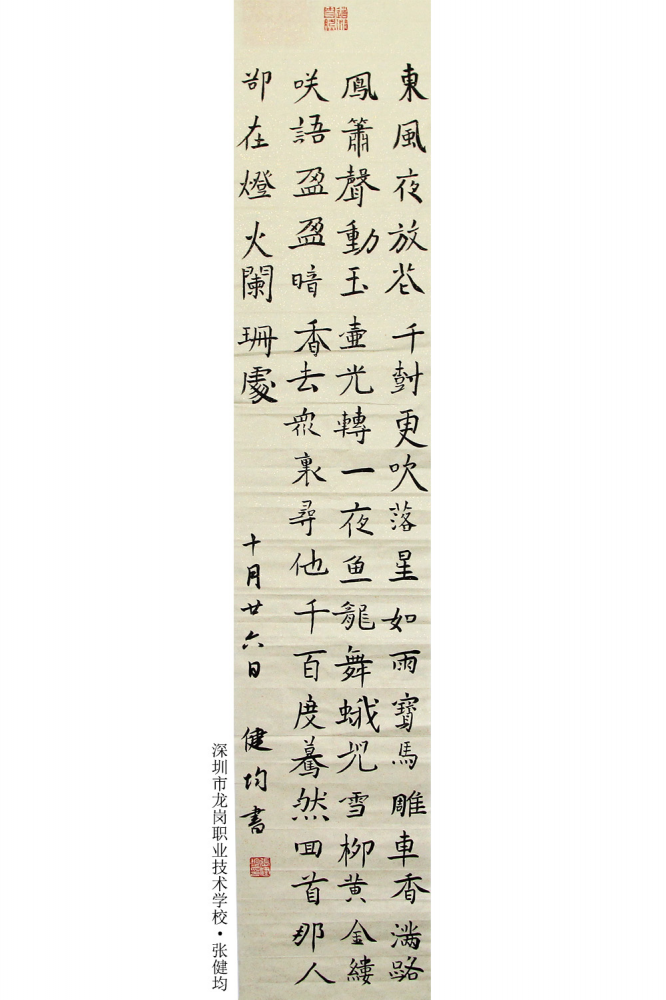 東風夜放花千樹更吹落星如雨寶馬雕車香滿路
鳳簫聲動玉壺光轉一夜鱼龍舞蛾兒雪柳黄金縷
咲語盈盈暗香去衆裏尋他千百度驀然回首那人
卻在燈火闌珊處 十月廿六日 健均書
深圳市龙岗职业技术学校•张健均